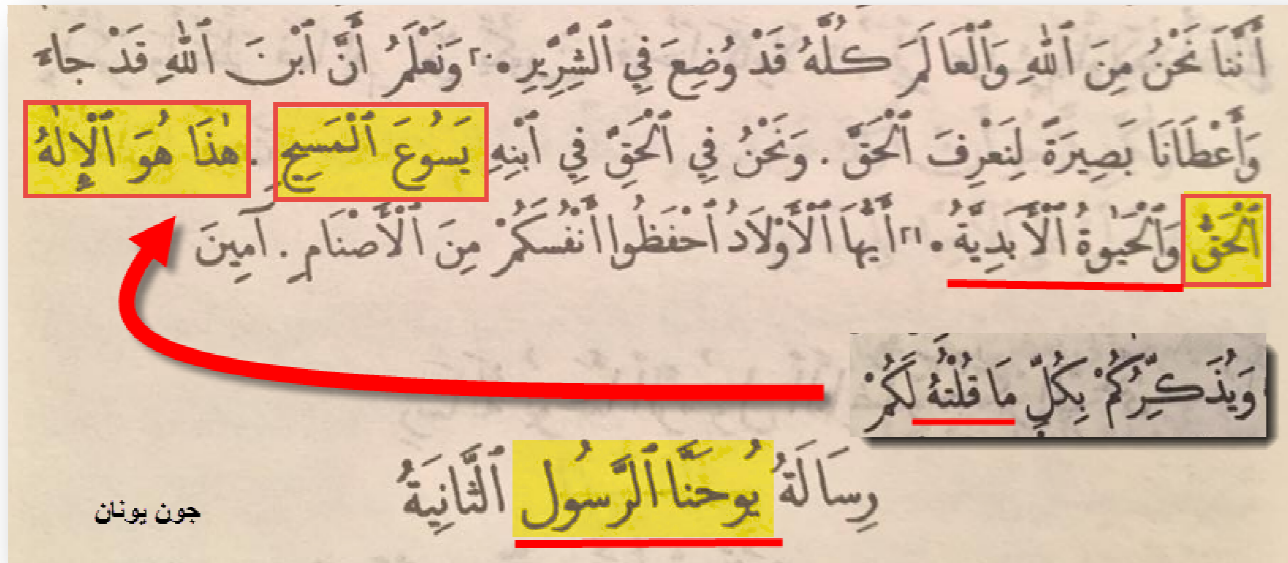 أَنَّنَا نَحْنُ مِنَ ٱللهِ وَٱلْعَالَمَ كُلَّهُ قَدْ وُضِعَ فِي ٱلشِّرِّيرِ. ٢٠ وَنَعْلَمُ أَنَّ ٱبْنَ ٱللهِ قَدْ جَاءَ
وَأَعْطَانَا بَصِيرَةً لِنَعْرِفَ ٱلْحَقَّ. وَنَحْنُ فِي ٱلْحَقِّ فِي ٱبْنِهِ يَسُوعَ ٱلْمَسِيحِ. هٰذَا هُوَ ٱلْإِلٰهُ
ٱلْحَقُّ وَٱلْحَيٰوةُ ٱلْأَبَدِيَّةُ. ٢١ أَيُّهَا ٱلْأَوْلَادُ ٱحْفَظُوا أَنْفُسَكُمْ مِنَ ٱلْأَصْنَامِ. آمِينَ
وَيُذَكِّرُكُمْ بِكُلِّ مَا قُلْتُهُ لَكُمْ
رِسَالَةُ يُوحَنَّا ٱلرَّسُولِ ٱلثَّانِيَةُ
جون يونان